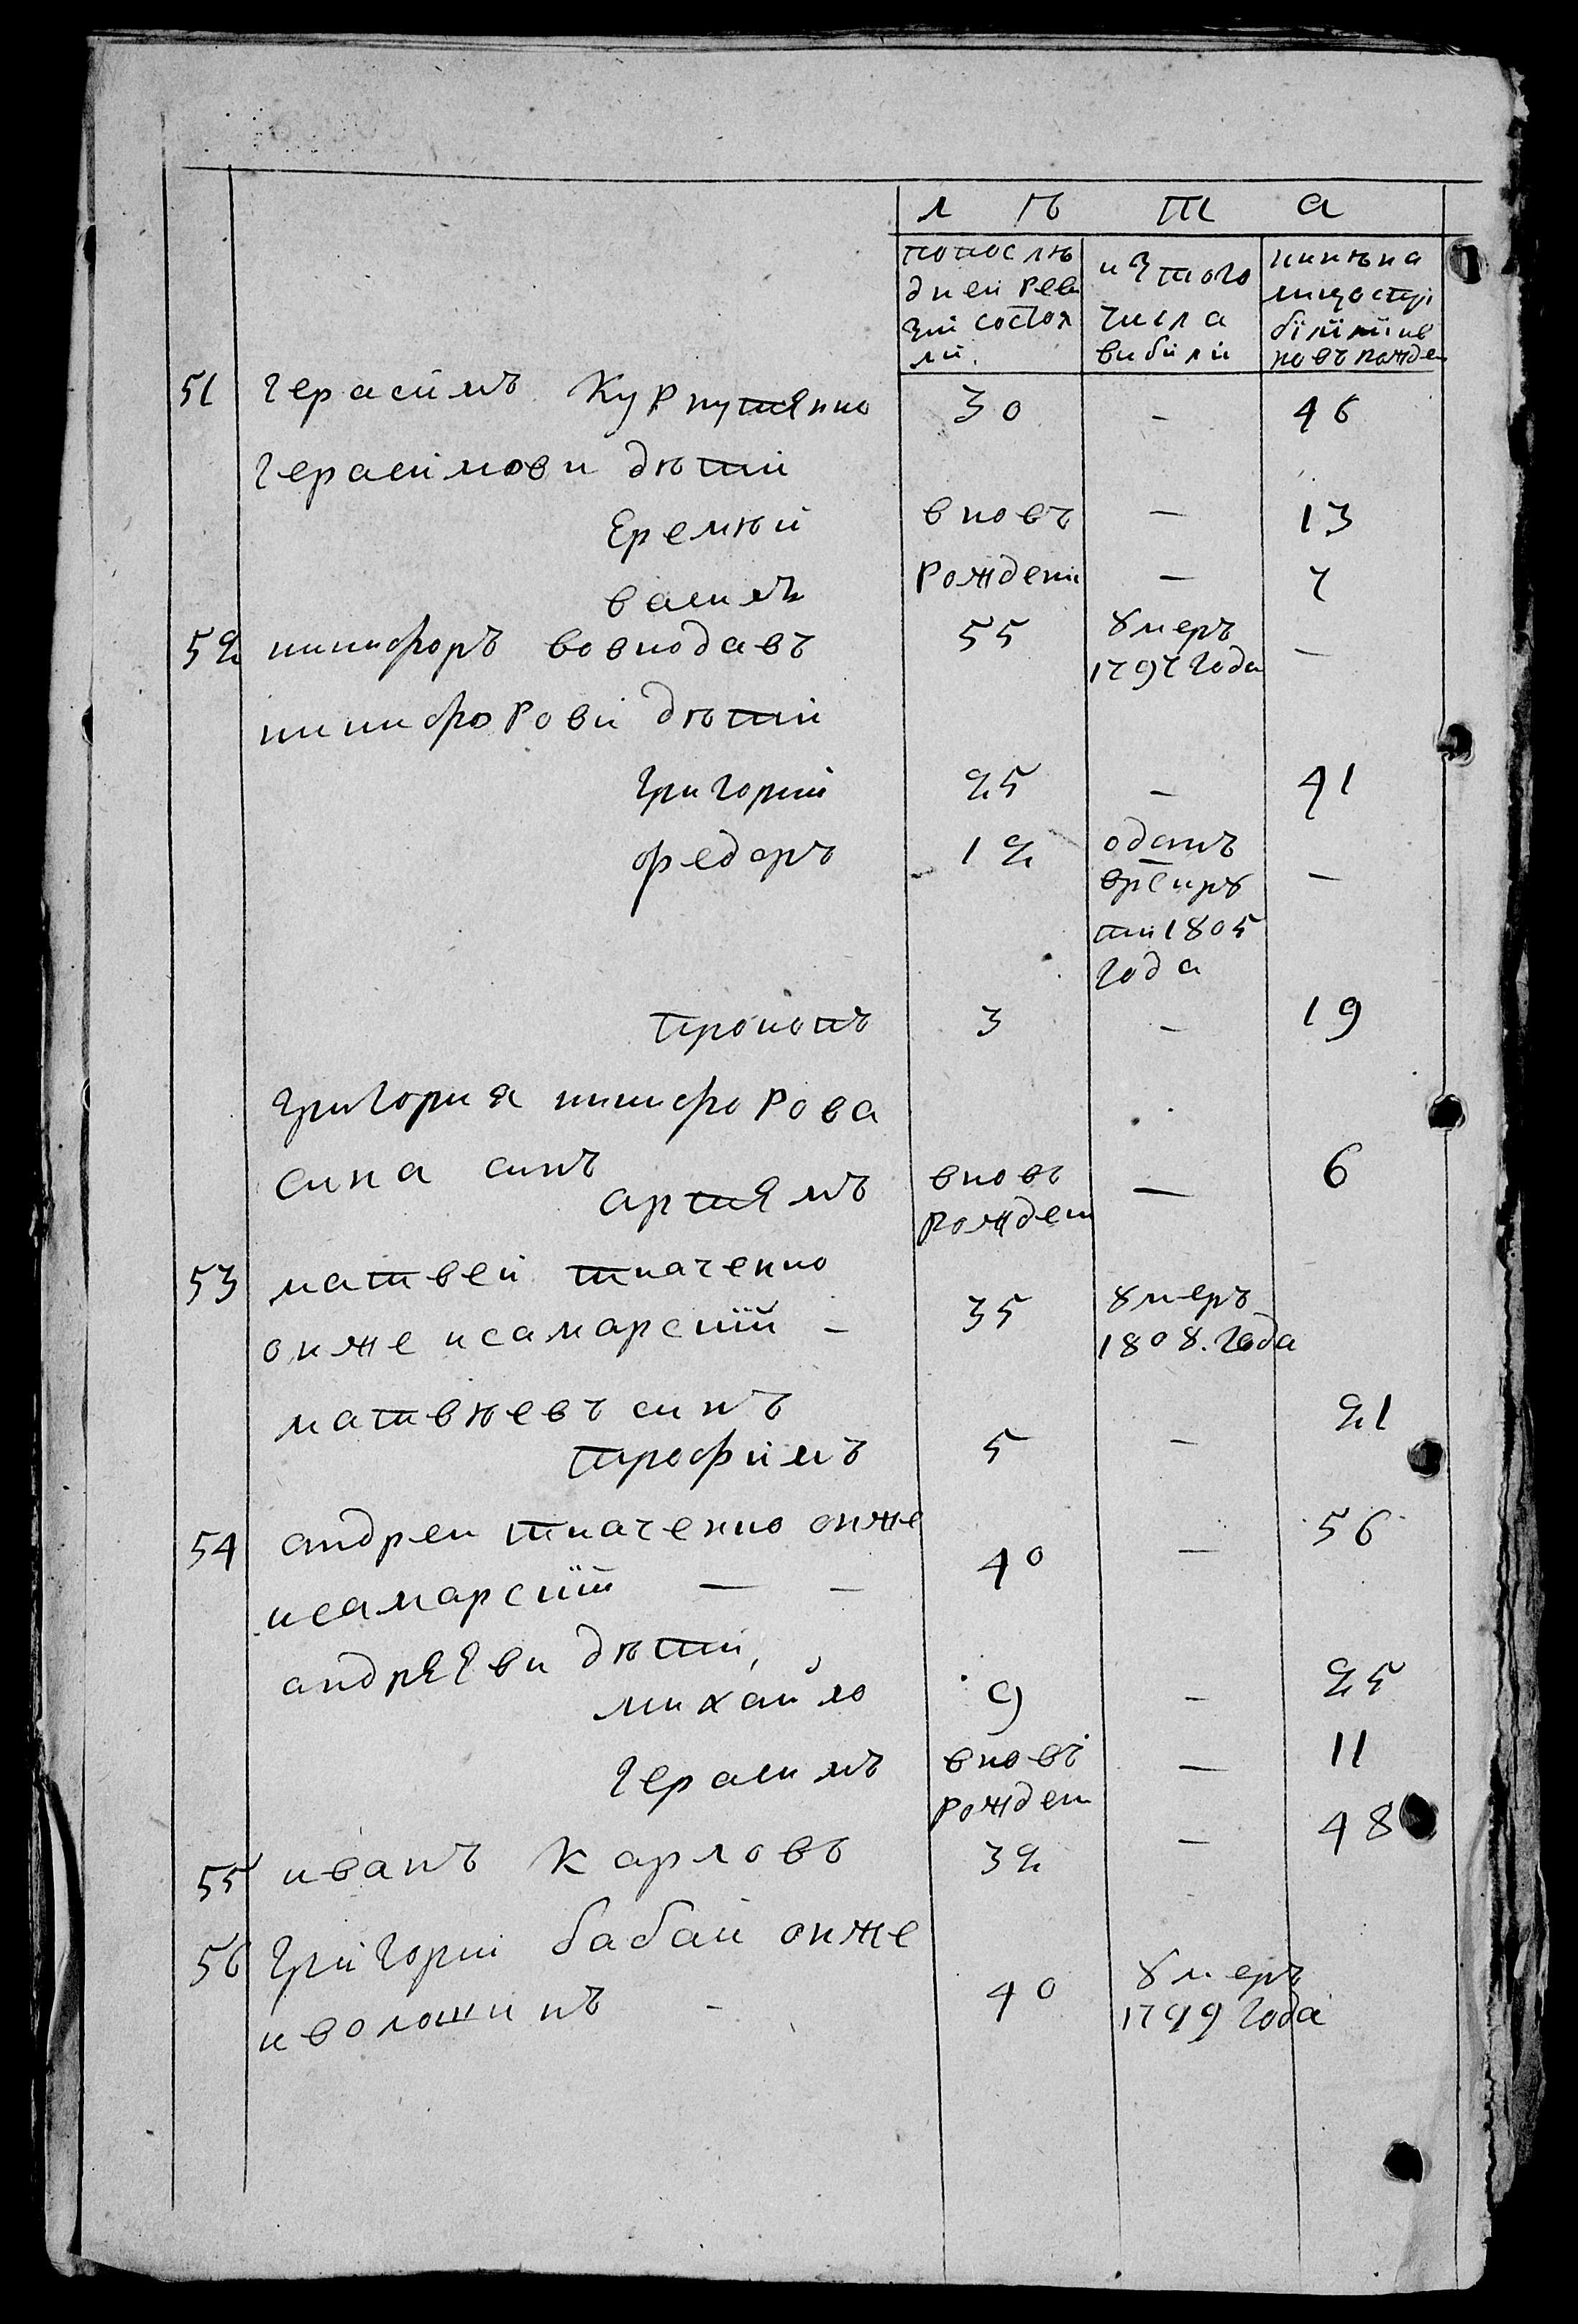 л ѣ т а
попослѣ
дней реви
зіи состоя
ли.
изтого
числа
вибили
нинѣна
лицостри
білііив
новъ рожде
51 герасимъ Курпутянко 30 - 46
герасимови дѣти
Еремѣй вновъ — 13
василъ рождени — 7
52 никифоръ вовнодавъ 55 ꙋмеръ —
1797 года
никифорови дѣти
григорий 25 — 41
федоръ 12 отданъ
врекру —
ти 1805
года
прокопъ 3 - 19
григория никифорова
сина синъ
артямъ вновъ — 6
рожден
53 матвей ткаченко
онже исамарский - 35 ꙋмеръ
1808. года
матвѣевъ синъ 21
трофимъ 5 -
54 андреи ткаченко онже 56
исамарский — — 40 —
андрєєви дѣти,
михайло 9 - 25
герасимъ вновъ — 11
рожден
55 иванъ Карловъ 32 — 48
56 григорий бабай онже
иволошинъ - 40 ꙋмеръ
1799 года